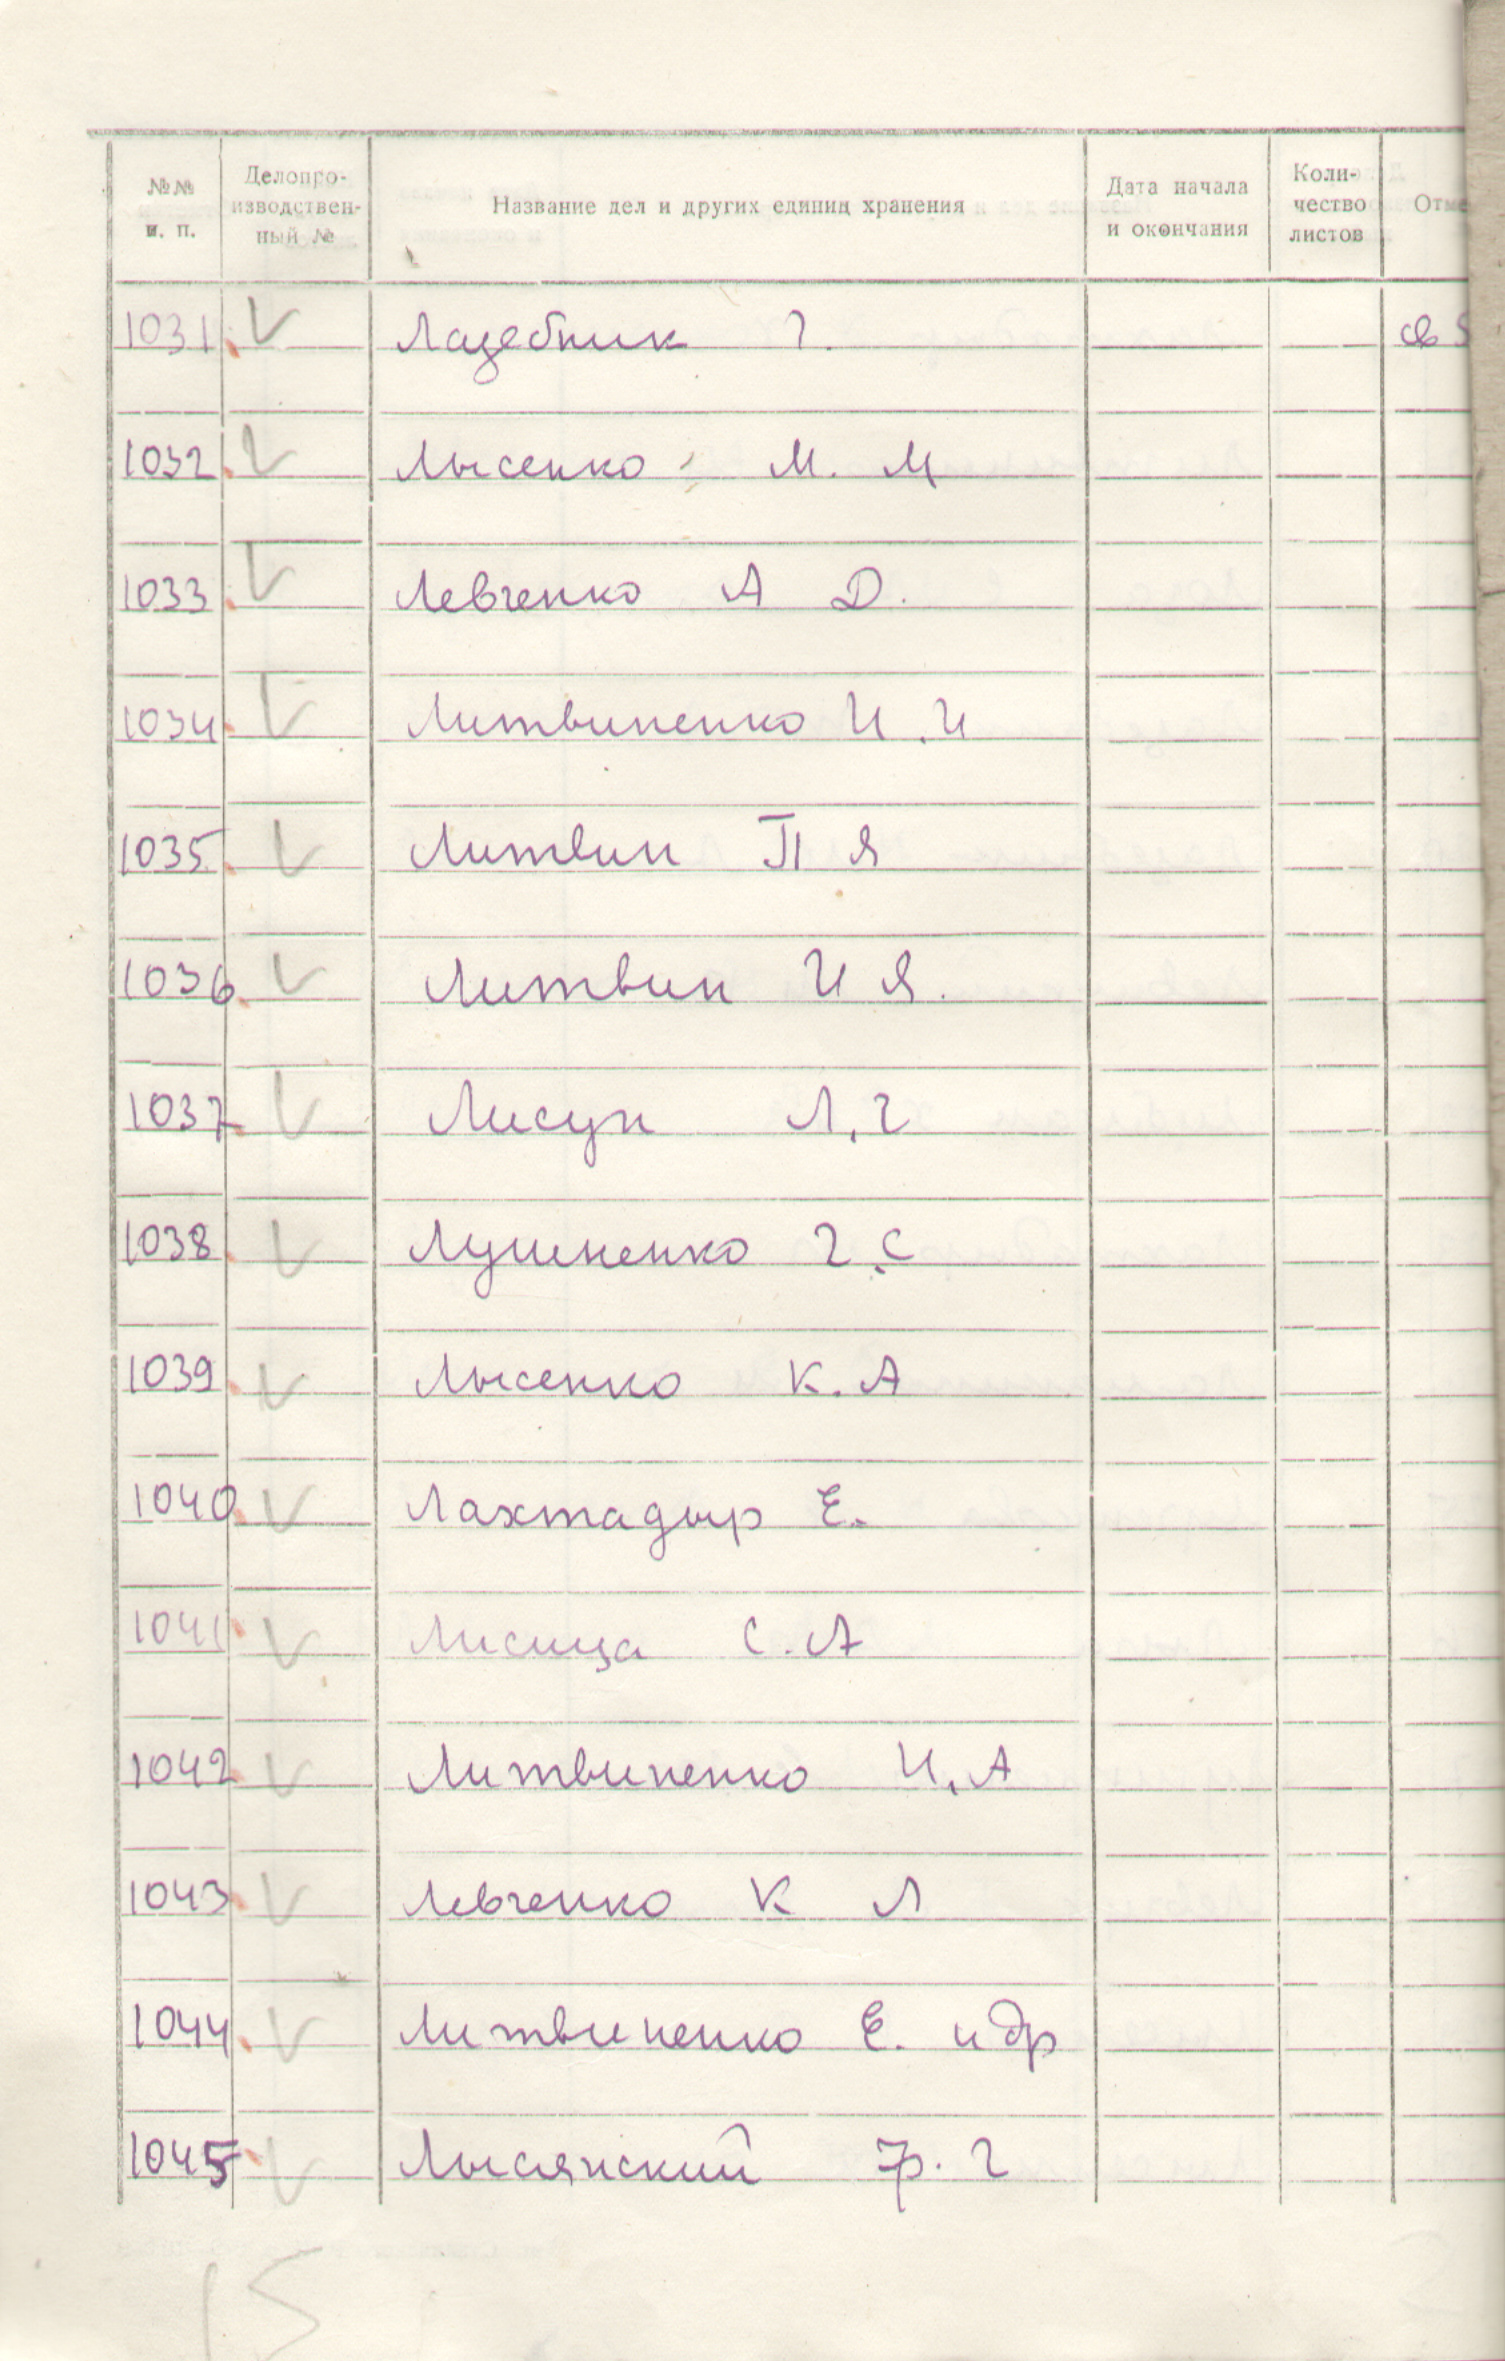 №№ п. п. Делопро-изводствен-ный № Название дел и других единиц хранения Дата начала и окончания Коли-чество листов Отме
1031. V Лазебник Г. св 5
1032. V Лысенко М. М
1033. V Левченко А Д.
1034. V Литвиненко И. И
1035. V Литвин П Я
1036. V Литвин И Я.
1037. V Лисун Л. Г
1038. V Лушненко Г. С
1039. V Лысенко К. А
1040. V Лахтадыр Е.
1041. V Лисица С. А
1042. V Литвиненко И. А
1043. V Левченко К Л
1044. V Литвиненко Е. и др
1045. V Лысянский Ф. Г
15